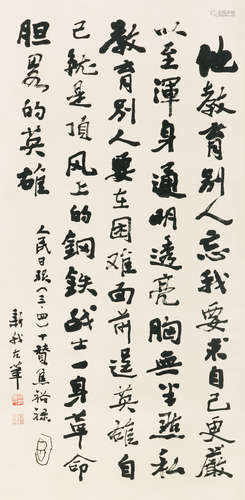 他教育别人忘我要求自己更嚴
以至渾身通明透亮胸無半點私
教育别人要在困难面前逞英雄自
己就是頂风上的鋼鉄战士一身革命
胆畧的英雄
人民日报(三·四)十贊焦裕禄
新我左筆